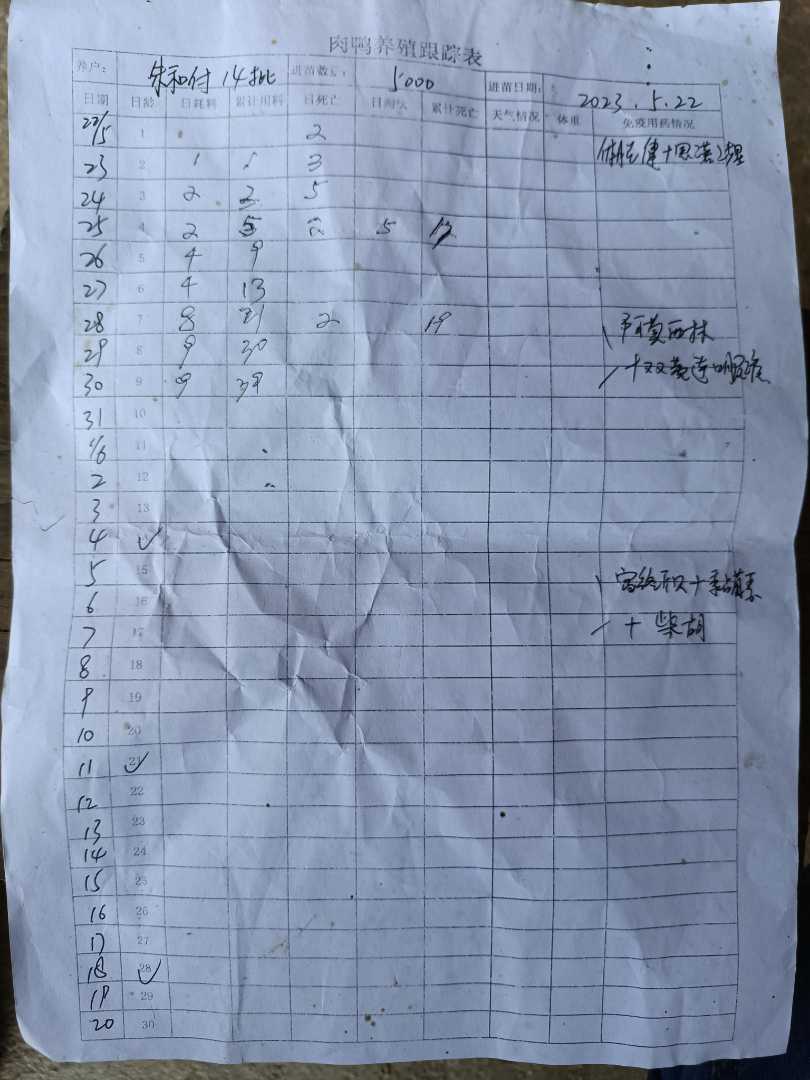 肉鸭养殖跟踪表
养户: 朱和付 14批 进苗数量: 5000 进苗日期: 2023.5.22
日期 日龄 日耗料 累计用料 日死亡 日淘汰 累计死亡 天气情况 体重 免疫用药情况
22/5 1 2
23 2 1 1 3
24 3 2 2 5
25 4 2 5 5 17
26 5 4 9
27 6 4 13
28 7 8 21 2 19 阿莫西林
29 8 9 30
30 9 9 39 十双黄连
31 10
1/6 11
2 12
3 13
4 ✓
5 15
6 16
7 17 十 柴胡
8 18
9 19
10 20
11 21 ✓
12 22
13 23
14 24
15 25
16 26
17 27
18 28 ✓
19 29
20 30